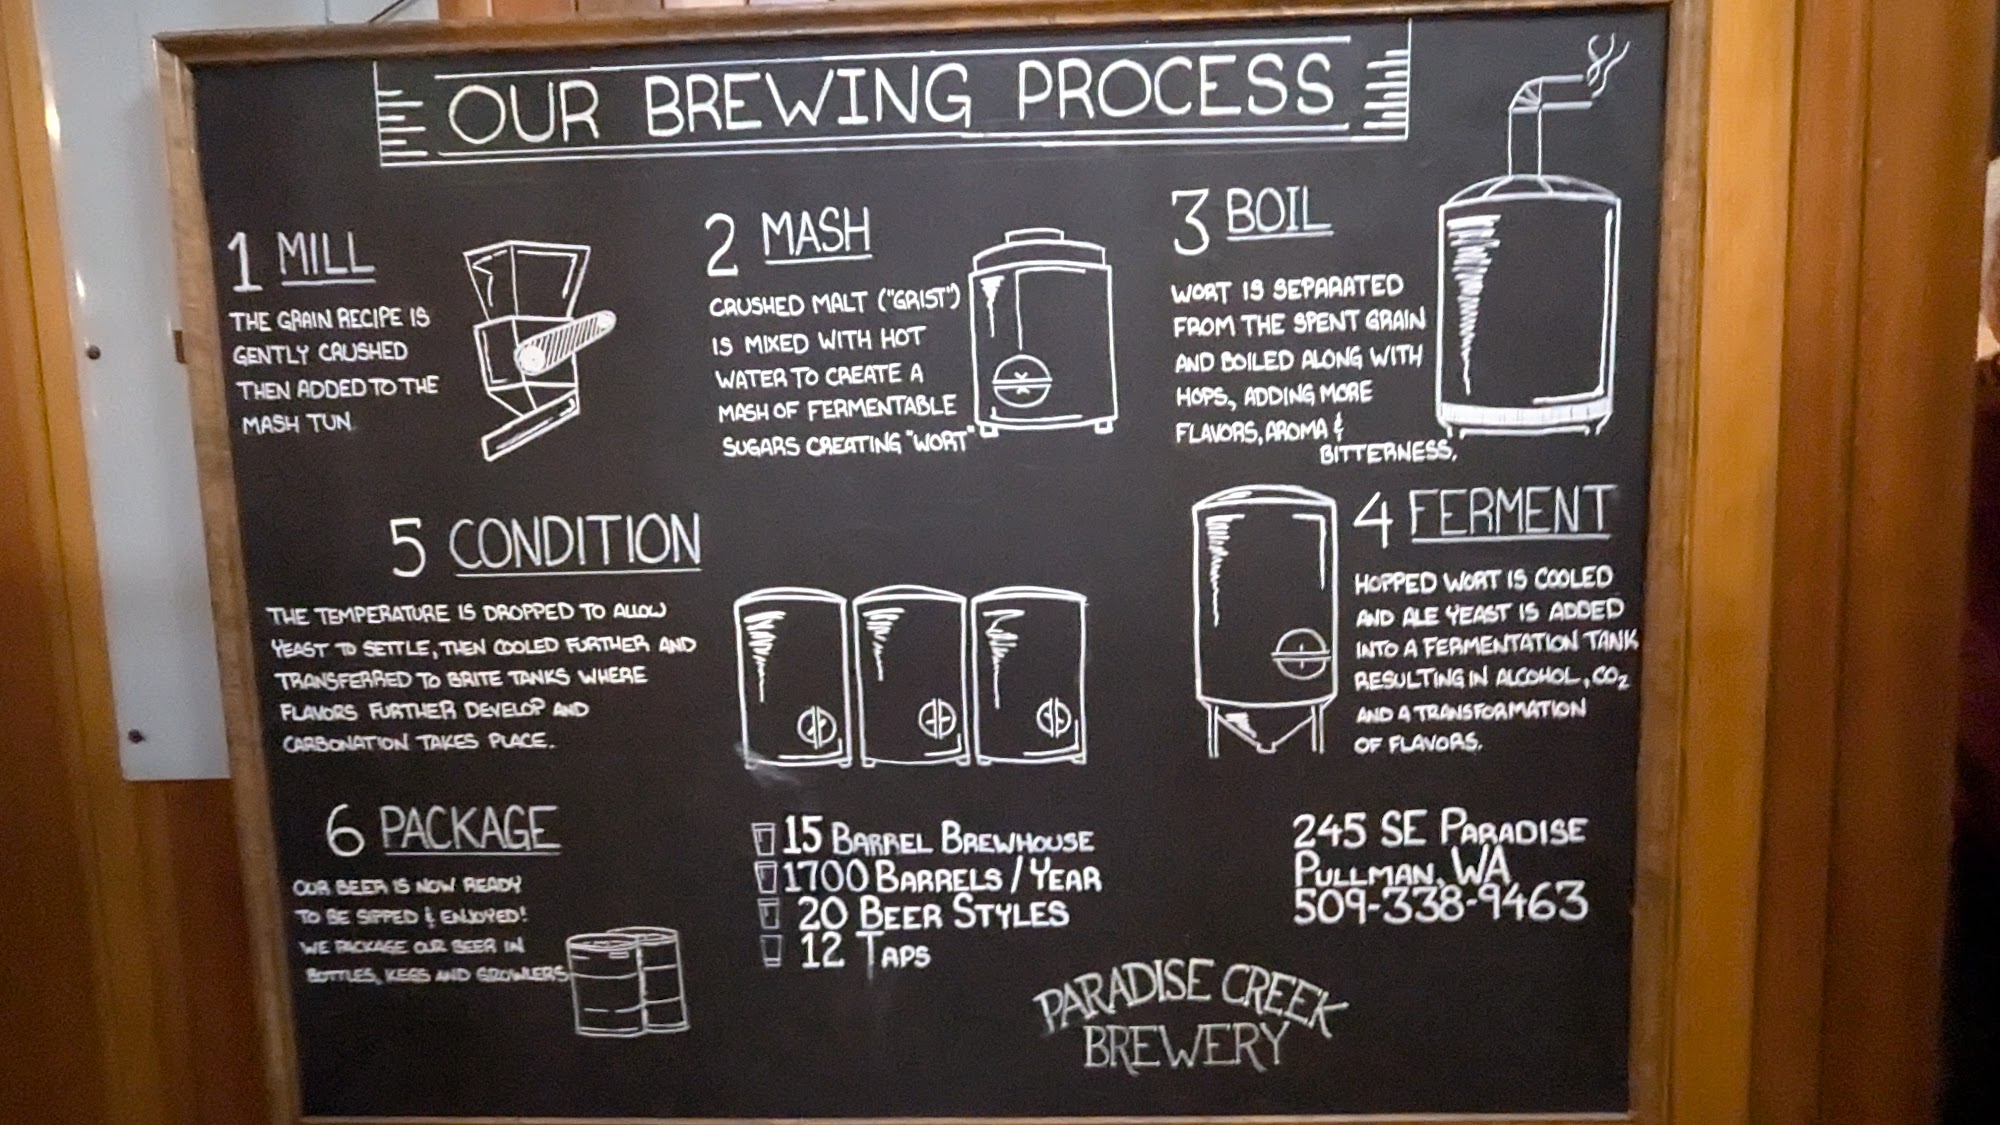 OUR BREWING PROCESS
1 MILL
THE GRAIN RECIPE IS
GENTLY CRUSHED
THEN ADDED TO THE
MASH TUN
2 MASH
CRUSHED MALT ("GRIST")
IS MIXED WITH HOT
WATER TO CREATE A
MASH OF FERMENTABLE
SUGARS CREATING "WORT"
3 BOIL
WORT IS SEPARATED
FROM THE SPENT GRAIN
AND BOILED ALONG WITH
HOPS, ADDING MORE
FLAVORS, AROMA &
BITTERNESS.
4 FERMENT
HOPPED WORT IS COOLED
AND ALE YEAST IS ADDED
INTO A FERMENTATION TANK
RESULTING IN ALCOHOL, CO₂
AND A TRANSFORMATION
OF FLAVORS.
5 CONDITION
THE TEMPERATURE IS DROPPED TO ALLOW
YEAST TO SETTLE, THEN COOLED FURTHER AND
TRANSFERRED TO BRITE TANKS WHERE
FLAVORS FURTHER DEVELOP AND
CARBONATION TAKES PLACE.
6 PACKAGE
OUR BEER IS NOW READY
TO BE SIPPED & ENJOYED!
WE PACKAGE OUR BEER IN
BOTTLES, KEGS AND GROWLERS
15 BARREL BREWHOUSE
1700 BARRELS / YEAR
20 BEER STYLES
12 TAPS
245 SE PARADISE
PULLMAN, WA
509-338-9463
PARADISE CREEK
BREWERY